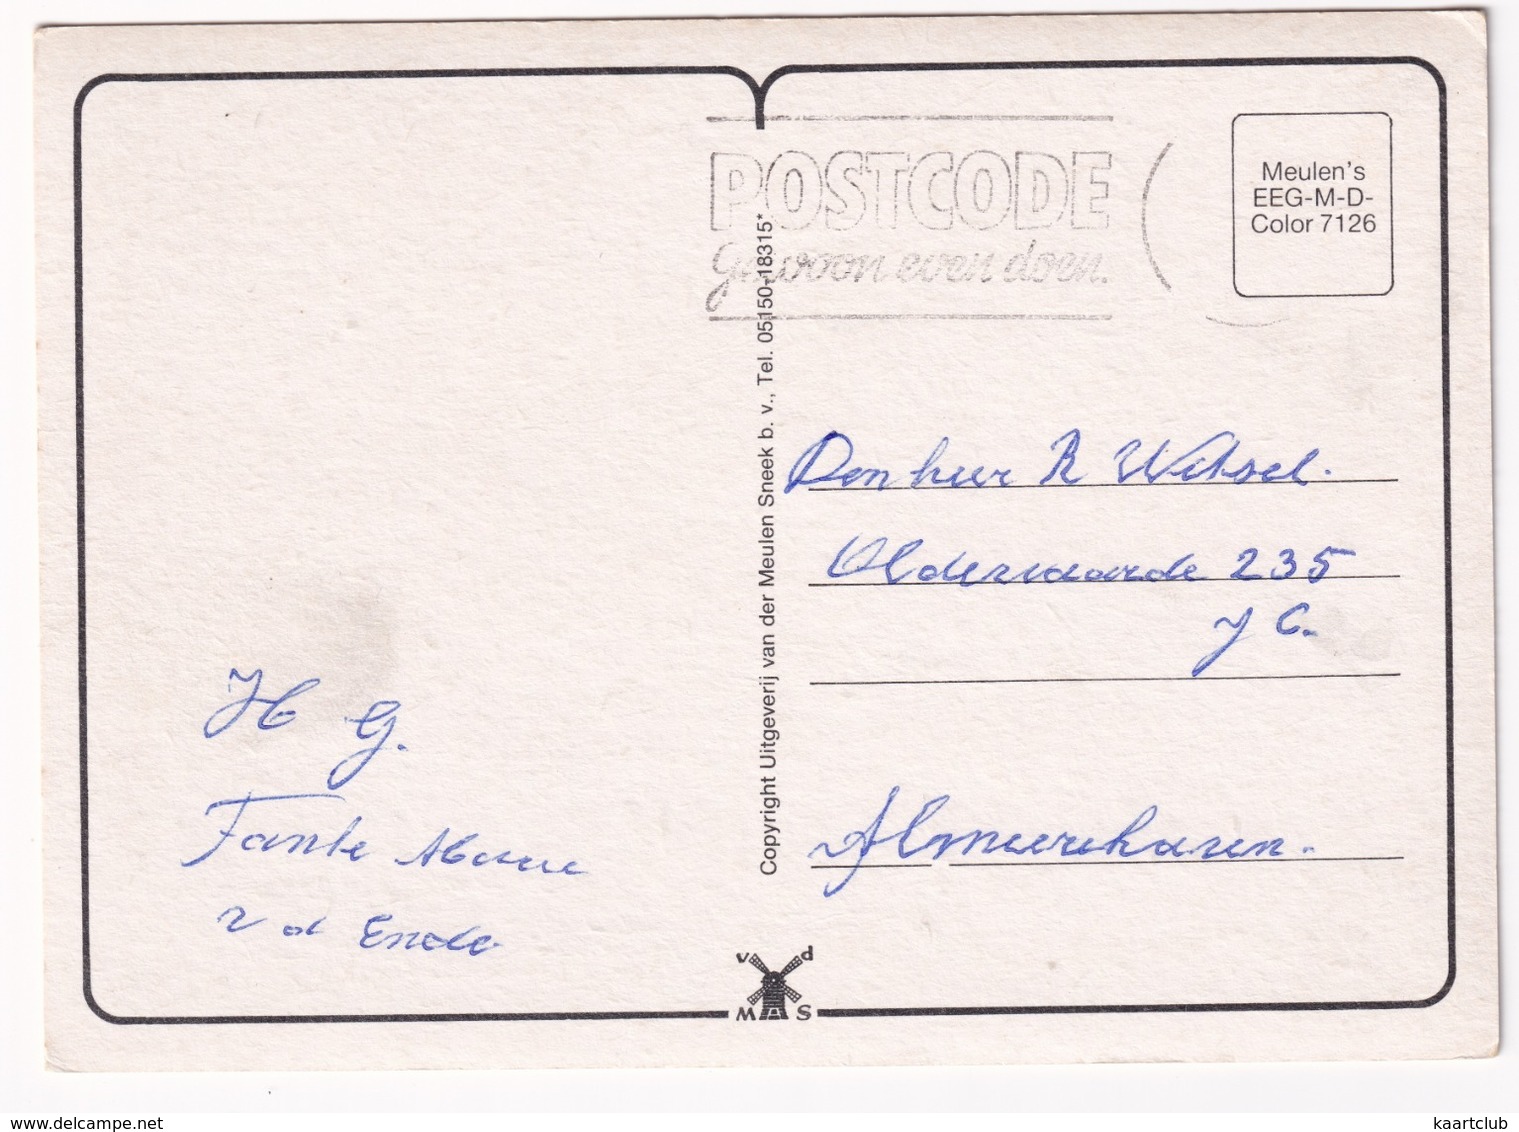 POSTCODE
Gewoon even doen.
Meulen's
EEG-M-D-
Color 7126
Copyright Uitgeverij van der Meulen Sneek b. v., Tel. 05150-18315*
Den heer R Witsel.
235
H G.
Tante
v d Ende
v d
M S
www.delcampe.net
kaartclub